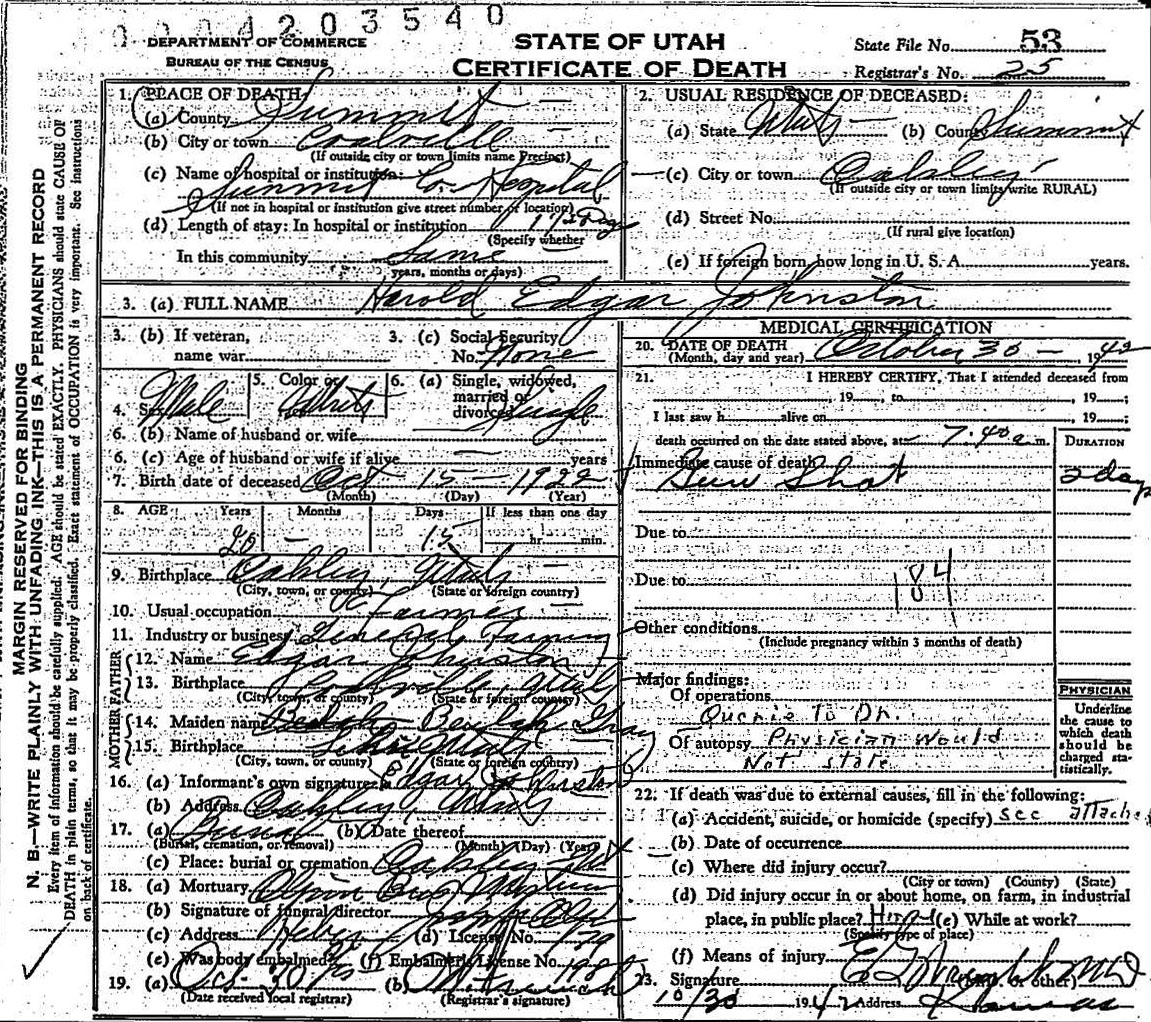 0004203540
DEPARTMENT OF COMMERCE
BUREAU OF THE CENSUS
STATE OF UTAH
CERTIFICATE OF DEATH
State File No. 53
Registrar's No. 25
MARGIN RESERVED FOR BINDING
N. B.—WRITE PLAINLY WITH UNFADING INK—THIS IS A PERMANENT RECORD
Every item of information should be carefully supplied. AGE should be stated EXACTLY. PHYSICIANS should state CAUSE OF
DEATH in plain terms, so that it may be properly classified. Exact statement of OCCUPATION is very important. See instructions
on back of certificate.
1. PLACE OF DEATH
(a) County Summit
(b) City or town Coalville
(If outside city or town limits name Precinct)
(c) Name of hospital or institution:
Summit Co. Hospital
(If not in hospital or institution give street number or location)
(d) Length of stay: In hospital or institution
(Specify whether
In this community Same
years, months or days)
2. USUAL RESIDENCE OF DECEASED:
(a) State Utah (b) County Summit
(c) City or town Oakley
(If outside city or town limits write RURAL)
(d) Street No.
(If rural give location)
(e) If foreign born, how long in U. S. A. years.
3. (a) FULL NAME Harold Edgar Johnston
3. (b) If veteran,
name war
3. (c) Social Security
No. None
4. Sex Male
5. Color or White
6. (a) Single, widowed,
married or
divorced Single
6. (b) Name of husband or wife
6. (c) Age of husband or wife if alive years
7. Birth date of deceased Oct 15 — 1922
(Month) (Day) (Year)
8. AGE Years Months Days If less than one day
20 — 15 hr. min.
9. Birthplace Oakley, Utah
(City, town, or county) (State or foreign country)
10. Usual occupation Farmer
11. Industry or business General Farming
FATHER
12. Name Edgar Johnston
13. Birthplace Utah
(City, town, or county) (State or foreign country)
MOTHER
14. Maiden name Beulah
15. Birthplace Utah
(City, town, or county) (State or foreign country)
16. (a) Informant's own signature Edgar Johnston
(b) Address Oakley, Utah
17. (a) Burial (b) Date thereof
(Burial, cremation, or removal) (Month) (Day) (Year)
(c) Place: burial or cremation Oakley Utah
18. (a) Mortuary Olpin
(b) Signature of funeral director
(c) Address Heber (d) License No. 179
(e) Was body embalmed? (f) Embalmer's License No.
19. (a) Oct. 30 (b)
(Date received local registrar) (Registrar's signature)
MEDICAL CERTIFICATION
20. DATE OF DEATH
(Month, day and year) October 30 — , 1942
21. I HEREBY CERTIFY, That I attended deceased from
, 19 , to , 19 ;
I last saw h alive on , 19 ;
death occurred on the date stated above, at 7.40 a m.
DURATION
Immediate cause of death
Gun Shot 2 days
Due to
Due to
184
Other conditions
(Include pregnancy within 3 months of death)
Major findings:
Of operations
Querie To Dr.
Of autopsy Physician Would
Not state
PHYSICIAN
Underline
the cause to
which death
should be
charged sta-
tistically.
22. If death was due to external causes, fill in the following:
(a) Accident, suicide, or homicide (specify) see attache
(b) Date of occurrence
(c) Where did injury occur?
(City or town) (County) (State)
(d) Did injury occur in or about home, on farm, in industrial
place, in public place? (e) While at work?
(Specify type of place)
(f) Means of injury
23. Signature (M.D. or other)
10/30 1942 Address Kamas